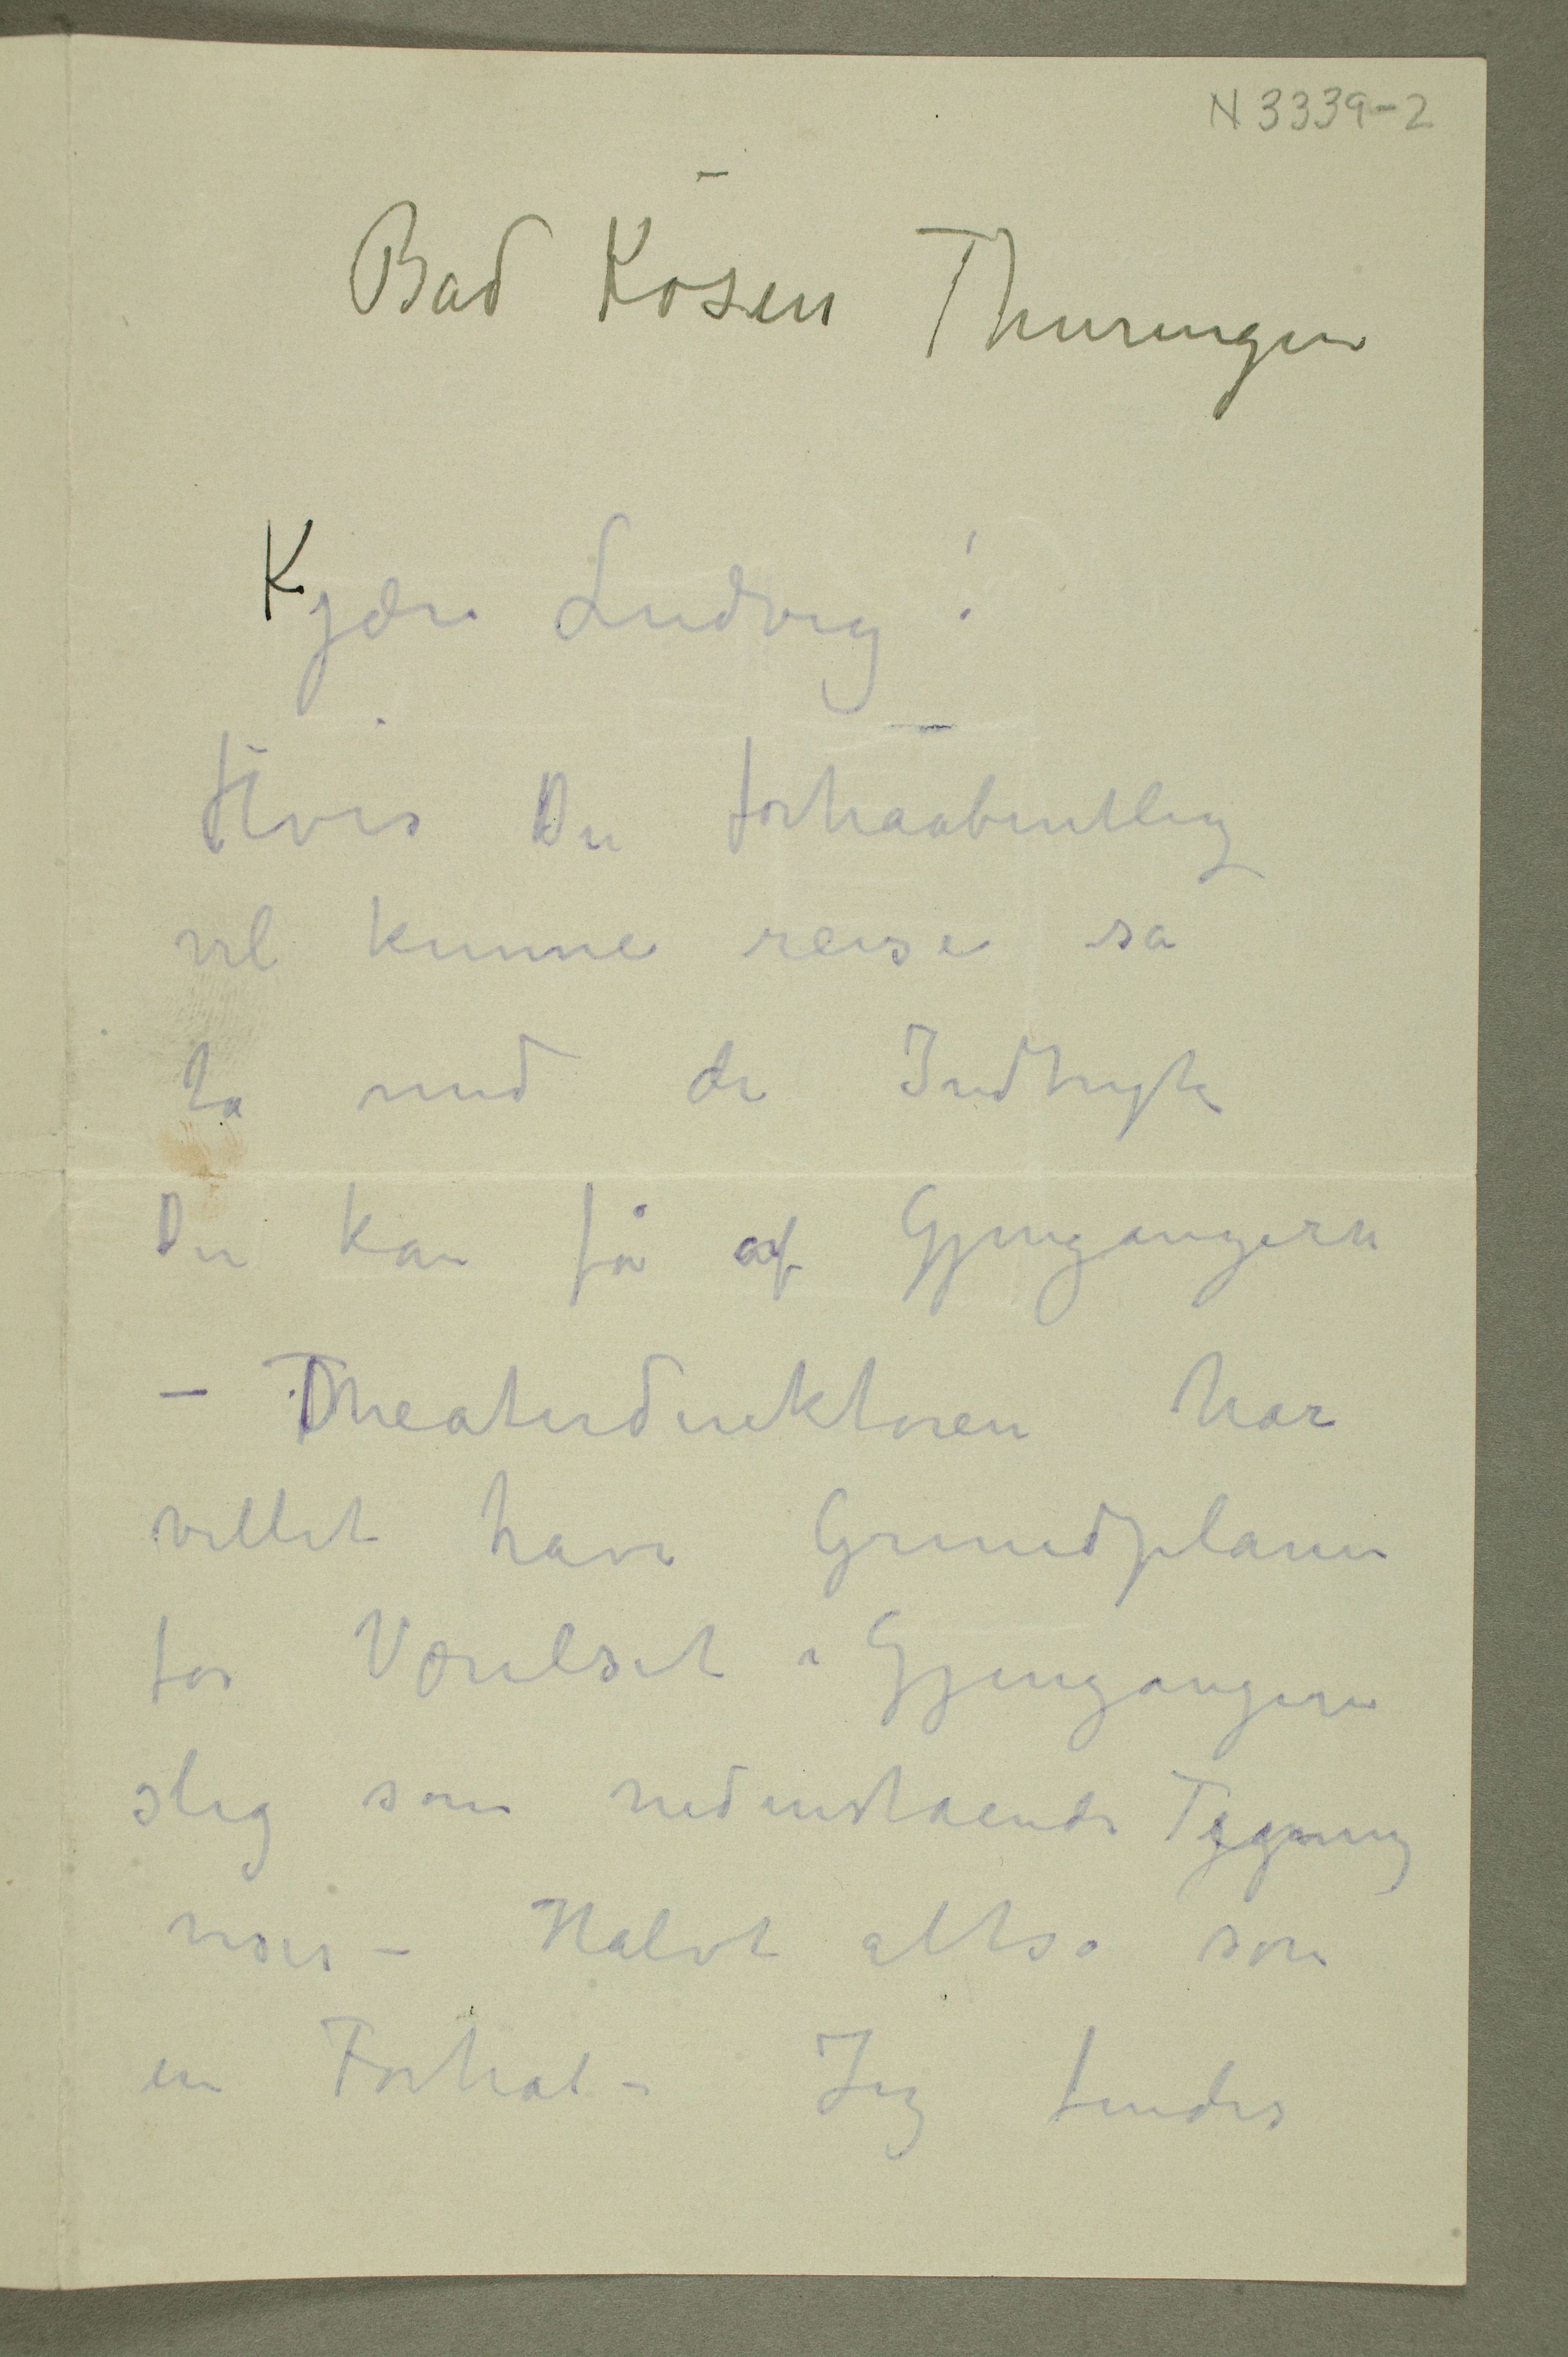 N 3339-2
Bad Kösen Thuringen
Kjære Ludvig!
Hvis Du forhaabentlig
vil kunne reise så
ta med de Indtryk
Du kan få af Gjengangere
– Theaterdirektøren har
villet have Grundplanen
for Værelset i Gjengangere
slig som nedenstaende Tegning
viser – Halvt altså som
en Forhal – Jeg findes